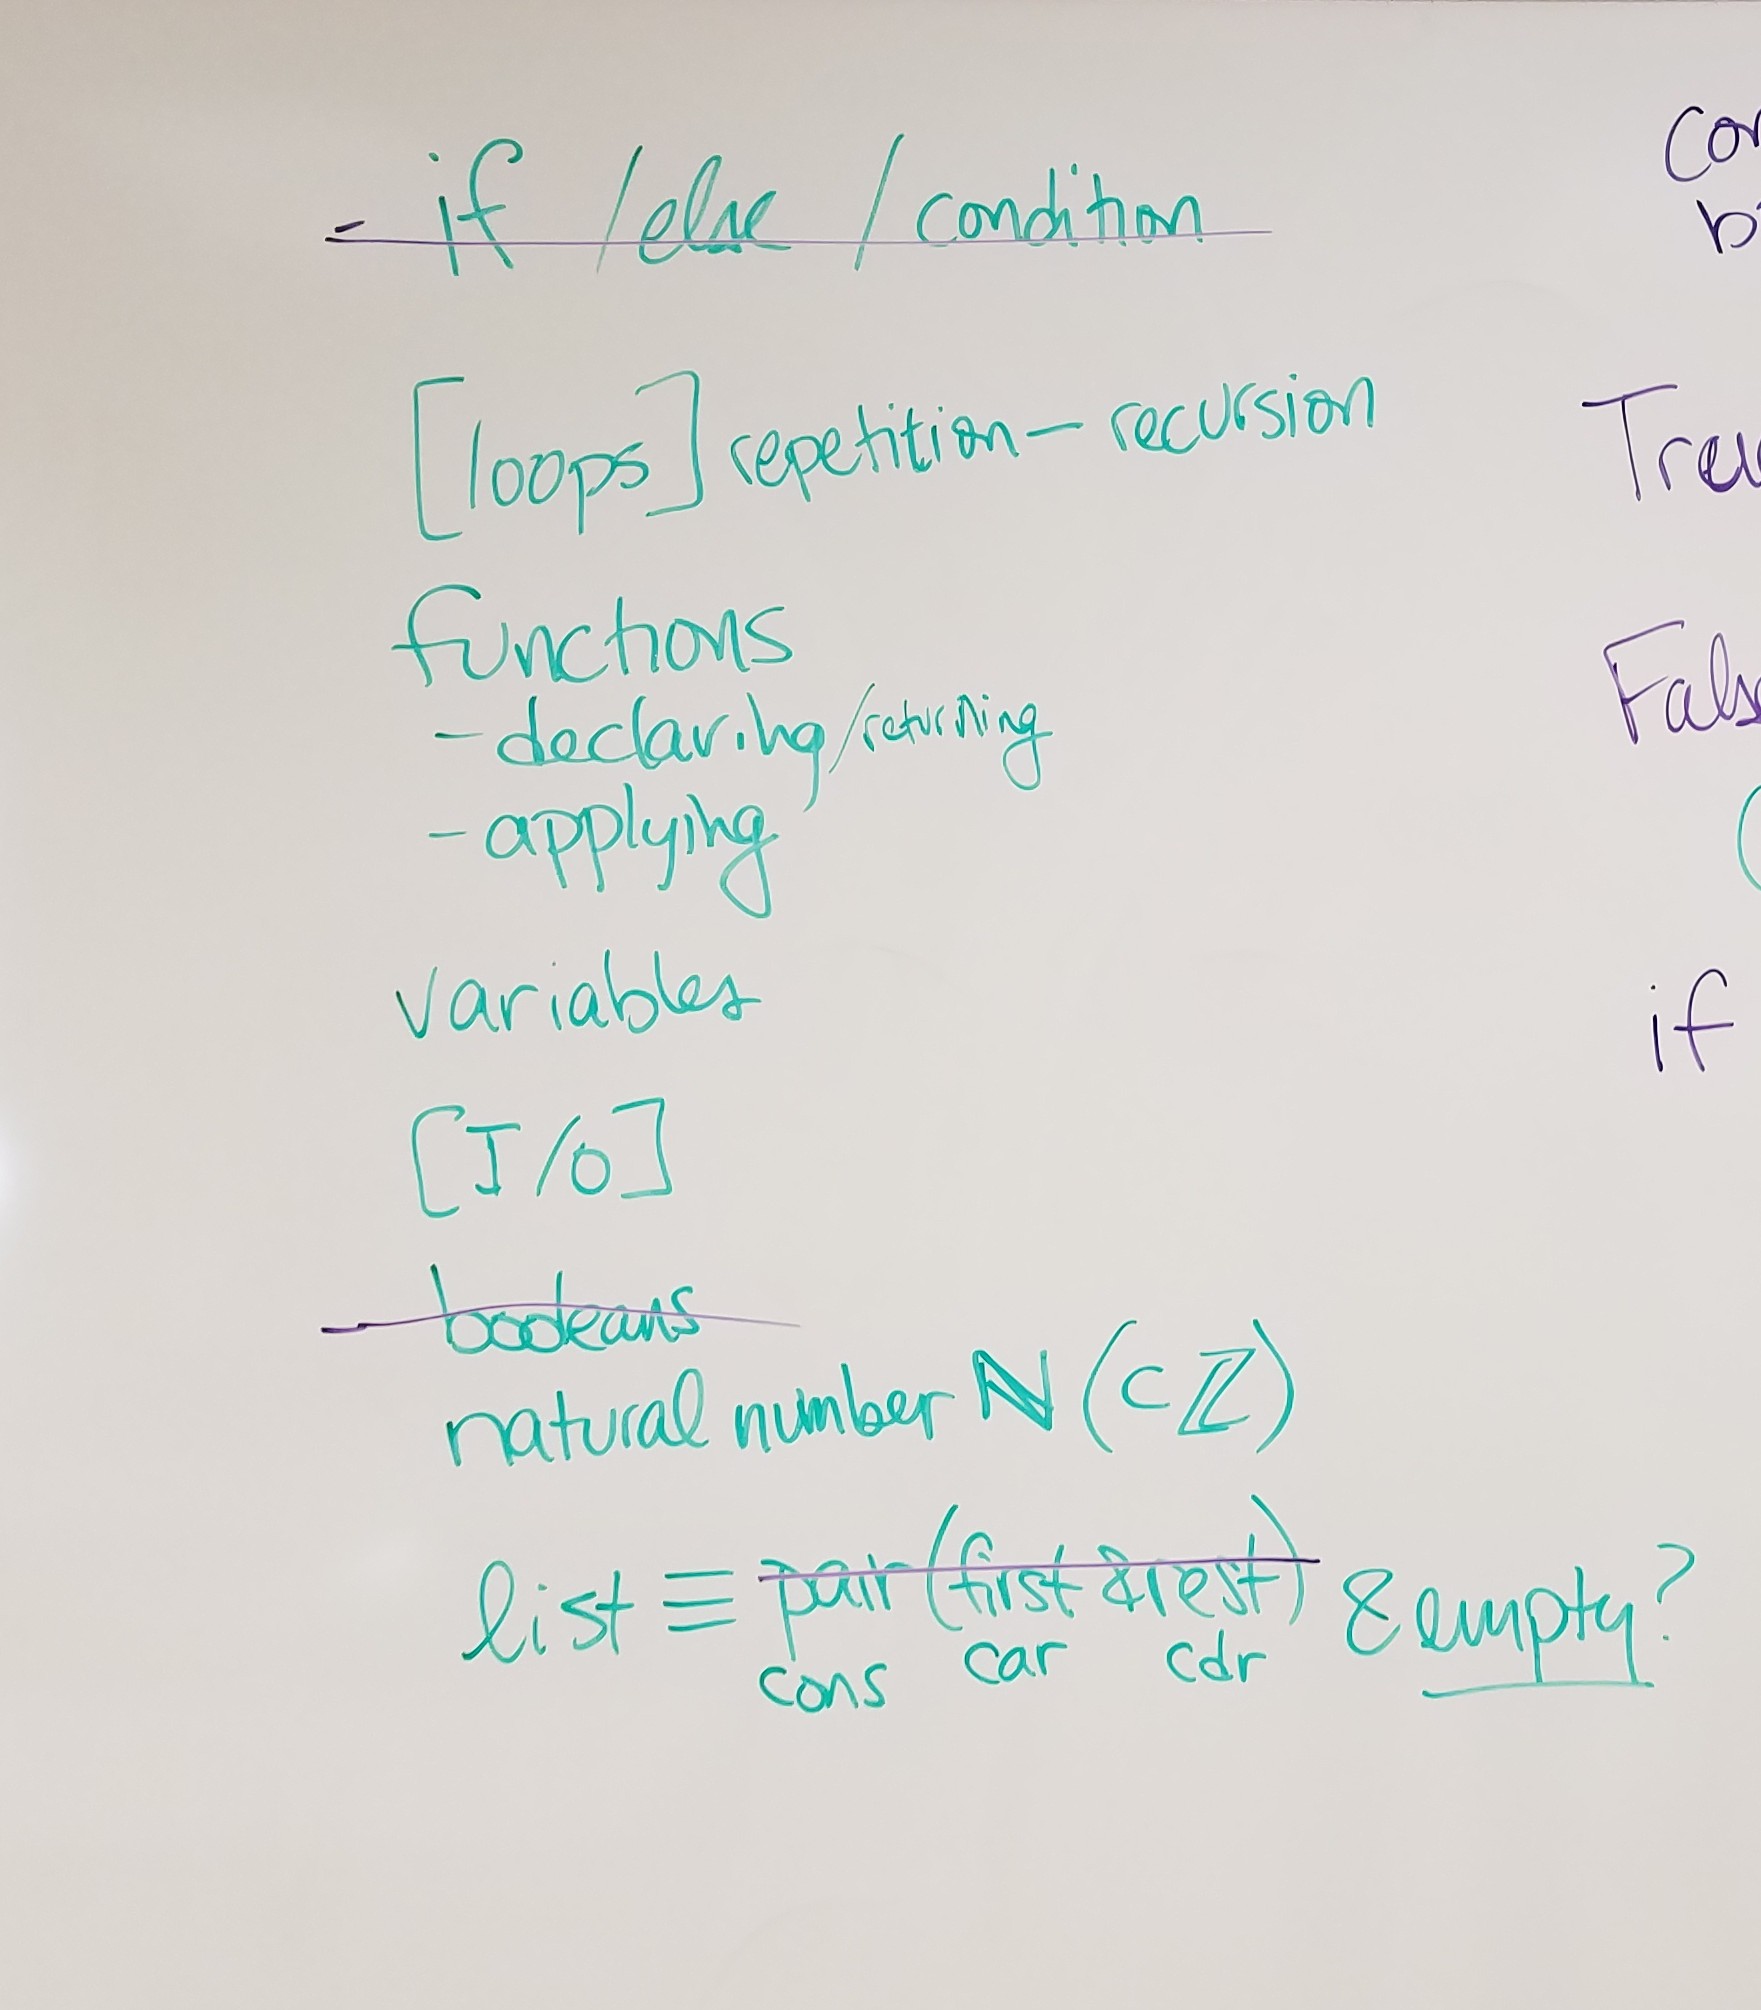 - if / else / condition
[loops] repetition - recursion
functions
- declaring/returning
- applying
variables
[I/O]
- booleans
natural number ℕ (⊂ ℤ)
list ≡ pair (first & rest) & empty?
cons car cdr
if